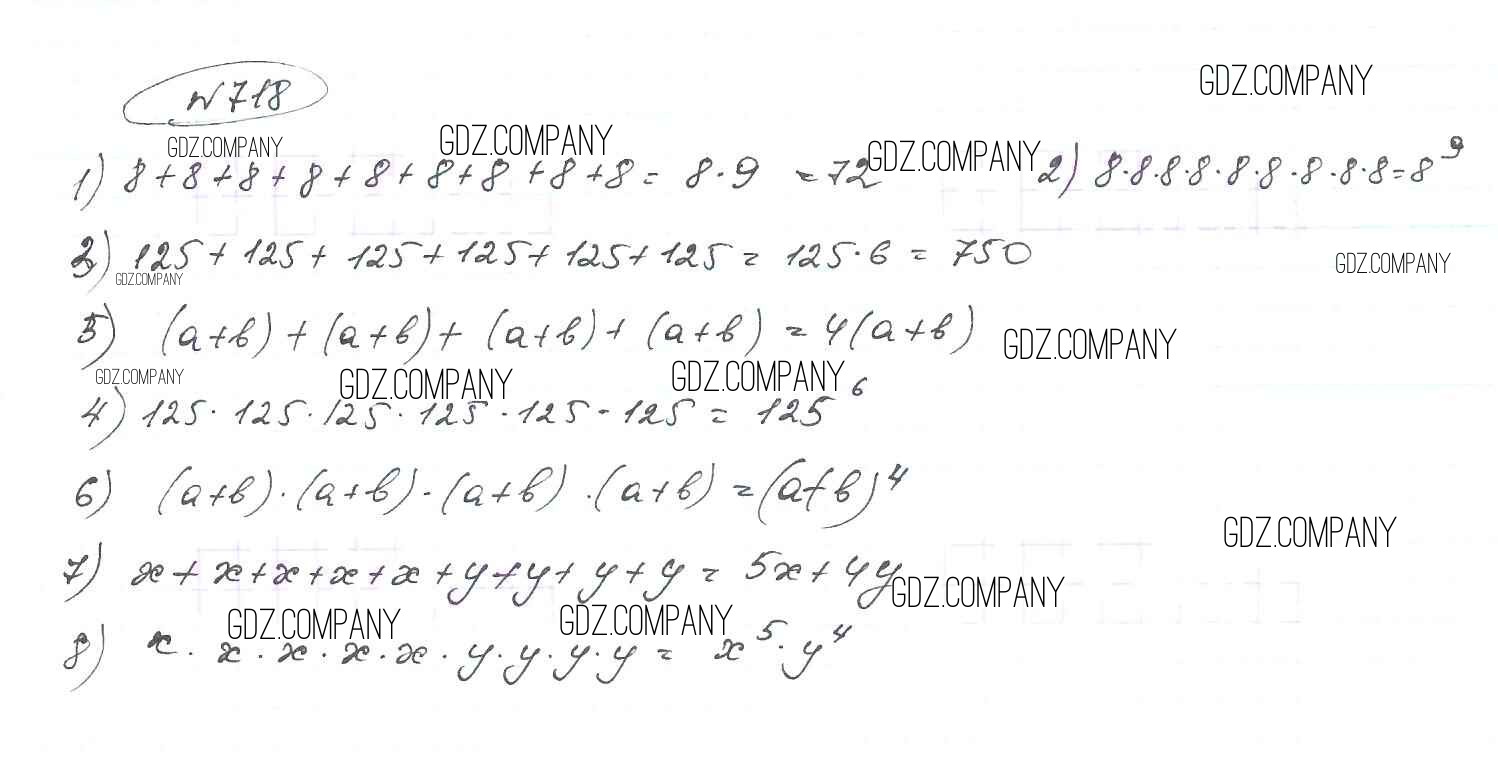 №718
GDZ.COMPANY
GDZ.COMPANY GDZ.COMPANY GDZ.COMPANY
1) 8+8+8+8+8+8+8+8+8= 8·9 =72 2) 8·8·8·8·8·8·8·8·8=8⁹
3) 125+125+125+125+125+125= 125·6 = 750
GDZ.COMPANY GDZ.COMPANY
5) (a+b)+(a+b)+(a+b)+(a+b) = 4(a+b)
GDZ.COMPANY
GDZ.COMPANY GDZ.COMPANY GDZ.COMPANY
4) 125·125·125·125·125·125 = 125⁶
6) (a+b)·(a+b)·(a+b)·(a+b) =(a+b)⁴
GDZ.COMPANY
7) x+x+x+x+x+y+y+y+y = 5x+4y
GDZ.COMPANY
GDZ.COMPANY GDZ.COMPANY
8) x·x·x·x·x·y·y·y·y = x⁵·y⁴